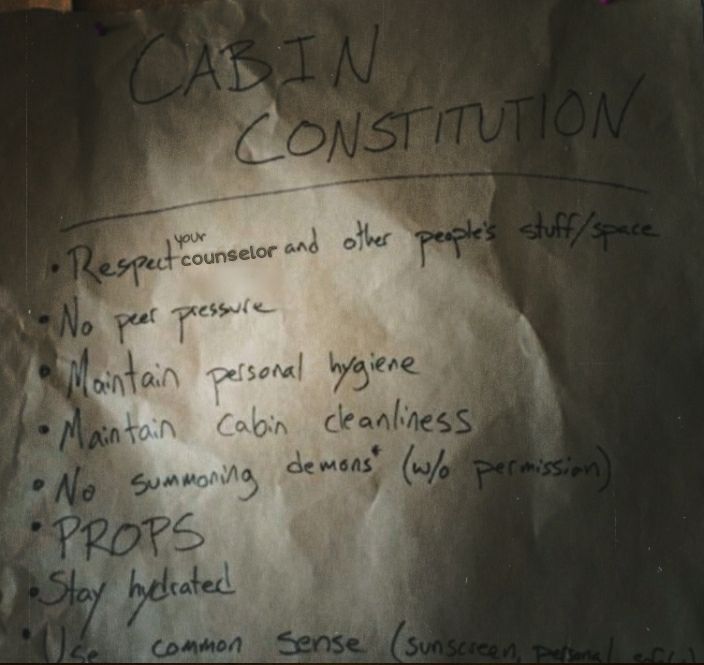 CABIN
CONSTITUTION
• Respect your counselor and other people's stuff/space
• No peer pressure
• Maintain personal hygiene
• Maintain cabin cleanliness
• No summoning demons* (w/o permission)
• PROPS
• Stay hydrated
• Use common sense (sunscreen, personal